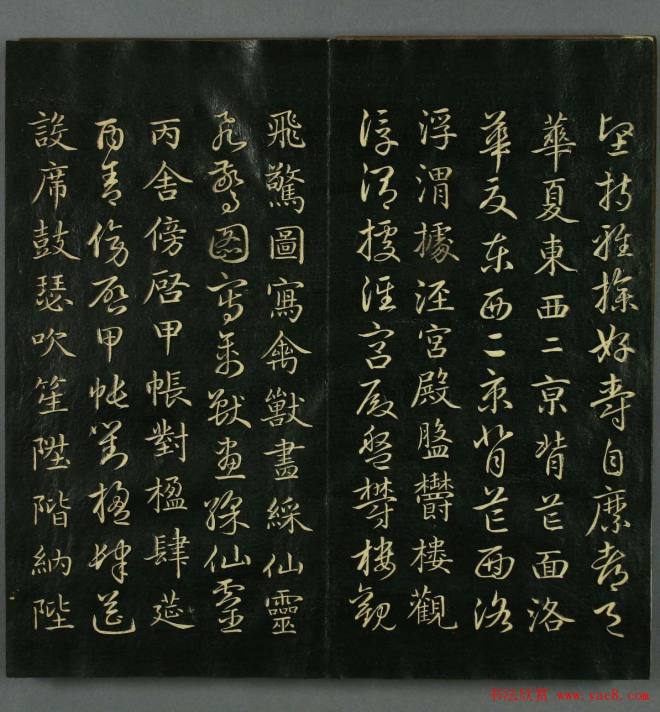 堅持雅操好爵自縻都邑
華夏東西二京背芒面洛
華夏東西二京背芒面洛
浮渭據涇宮殿盤鬱樓觀
浮渭據涇宮殿盤鬱樓觀
飛驚圖寫禽獸畫綵仙靈
飛驚圖寫禽獸畫綵仙靈
丙舍傍啓甲帳對楹肆筵
丙舍傍啓甲帳對楹肆筵
設席鼓瑟吹笙陞階納陛
书法欣赏 www.yac8.com